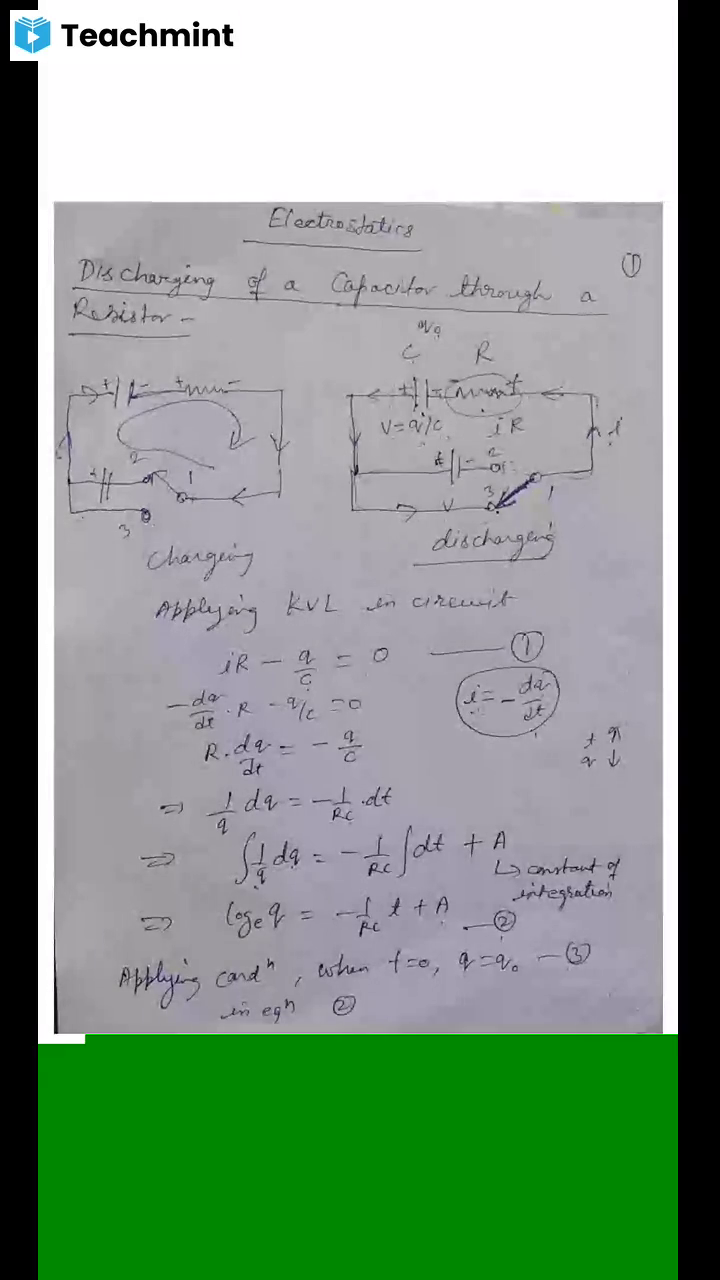 Teachmint
Electrostatics
①
Discharging of a Capacitor through a
Resistor -
C R
V=q/c iR
+ - + -
2
1
3
i
2
3
1
V
Chargeing
dischargeing
Applying KVL in circuit
iR - q/c = 0 —— ①
-dq/dt . R - q/c = 0
i = - dq/dt
R . dq/dt = - q/c
t ↑
q ↓
⇒ 1/q dq = - 1/RC . dt
⇒ ∫ 1/q dq = - 1/RC ∫ dt + A
↳ constant of
integration
⇒ loge q = - 1/RC t + A — ②
Applying condⁿ, when t=0, q=q₀ — ③
in eqⁿ ②